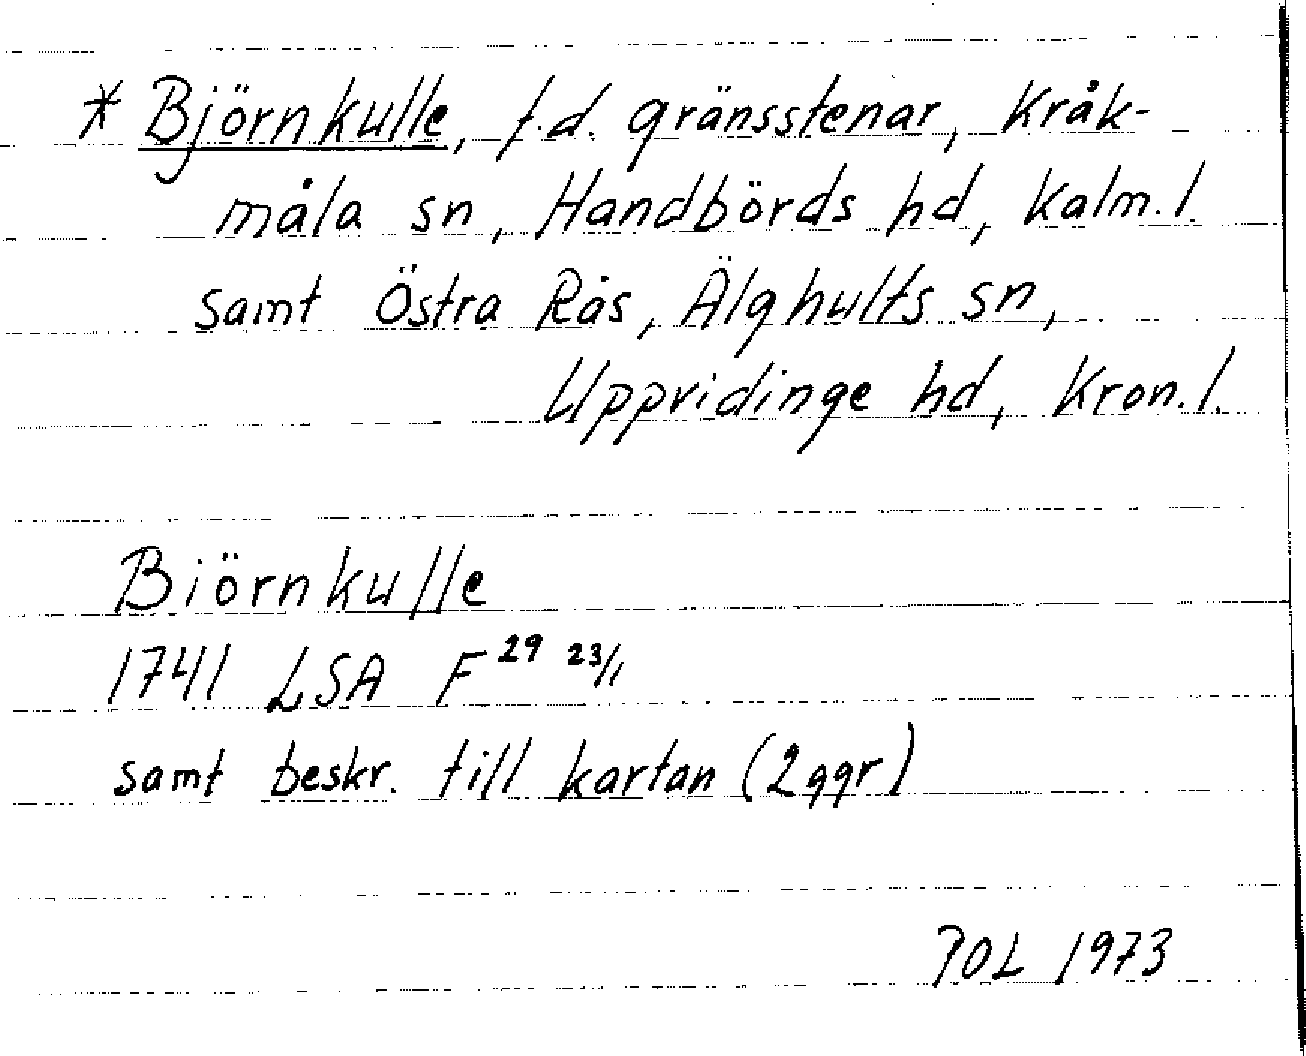 * Björnkulle, f.d. gränsstenar, Kråk-
måla sn, Handbörds hd, Kalm.l.
samt Östra Rås, Älghults sn,
Uppvidinge hd, Kron.l.
Biörnkulle
1741 LSA F 29 23/1
samt beskr. till kartan (2ggr)
POL 1973